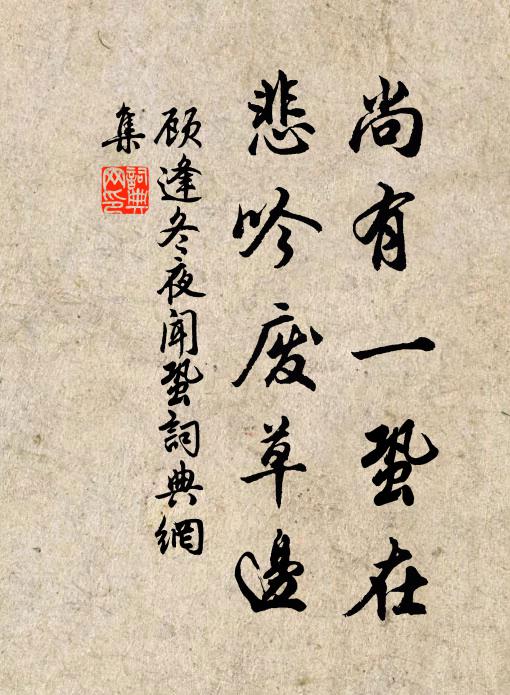 尚有一蛩在
悲吟废草邊
顾逢冬夜闻蛩詞典網
集
詞典
网印